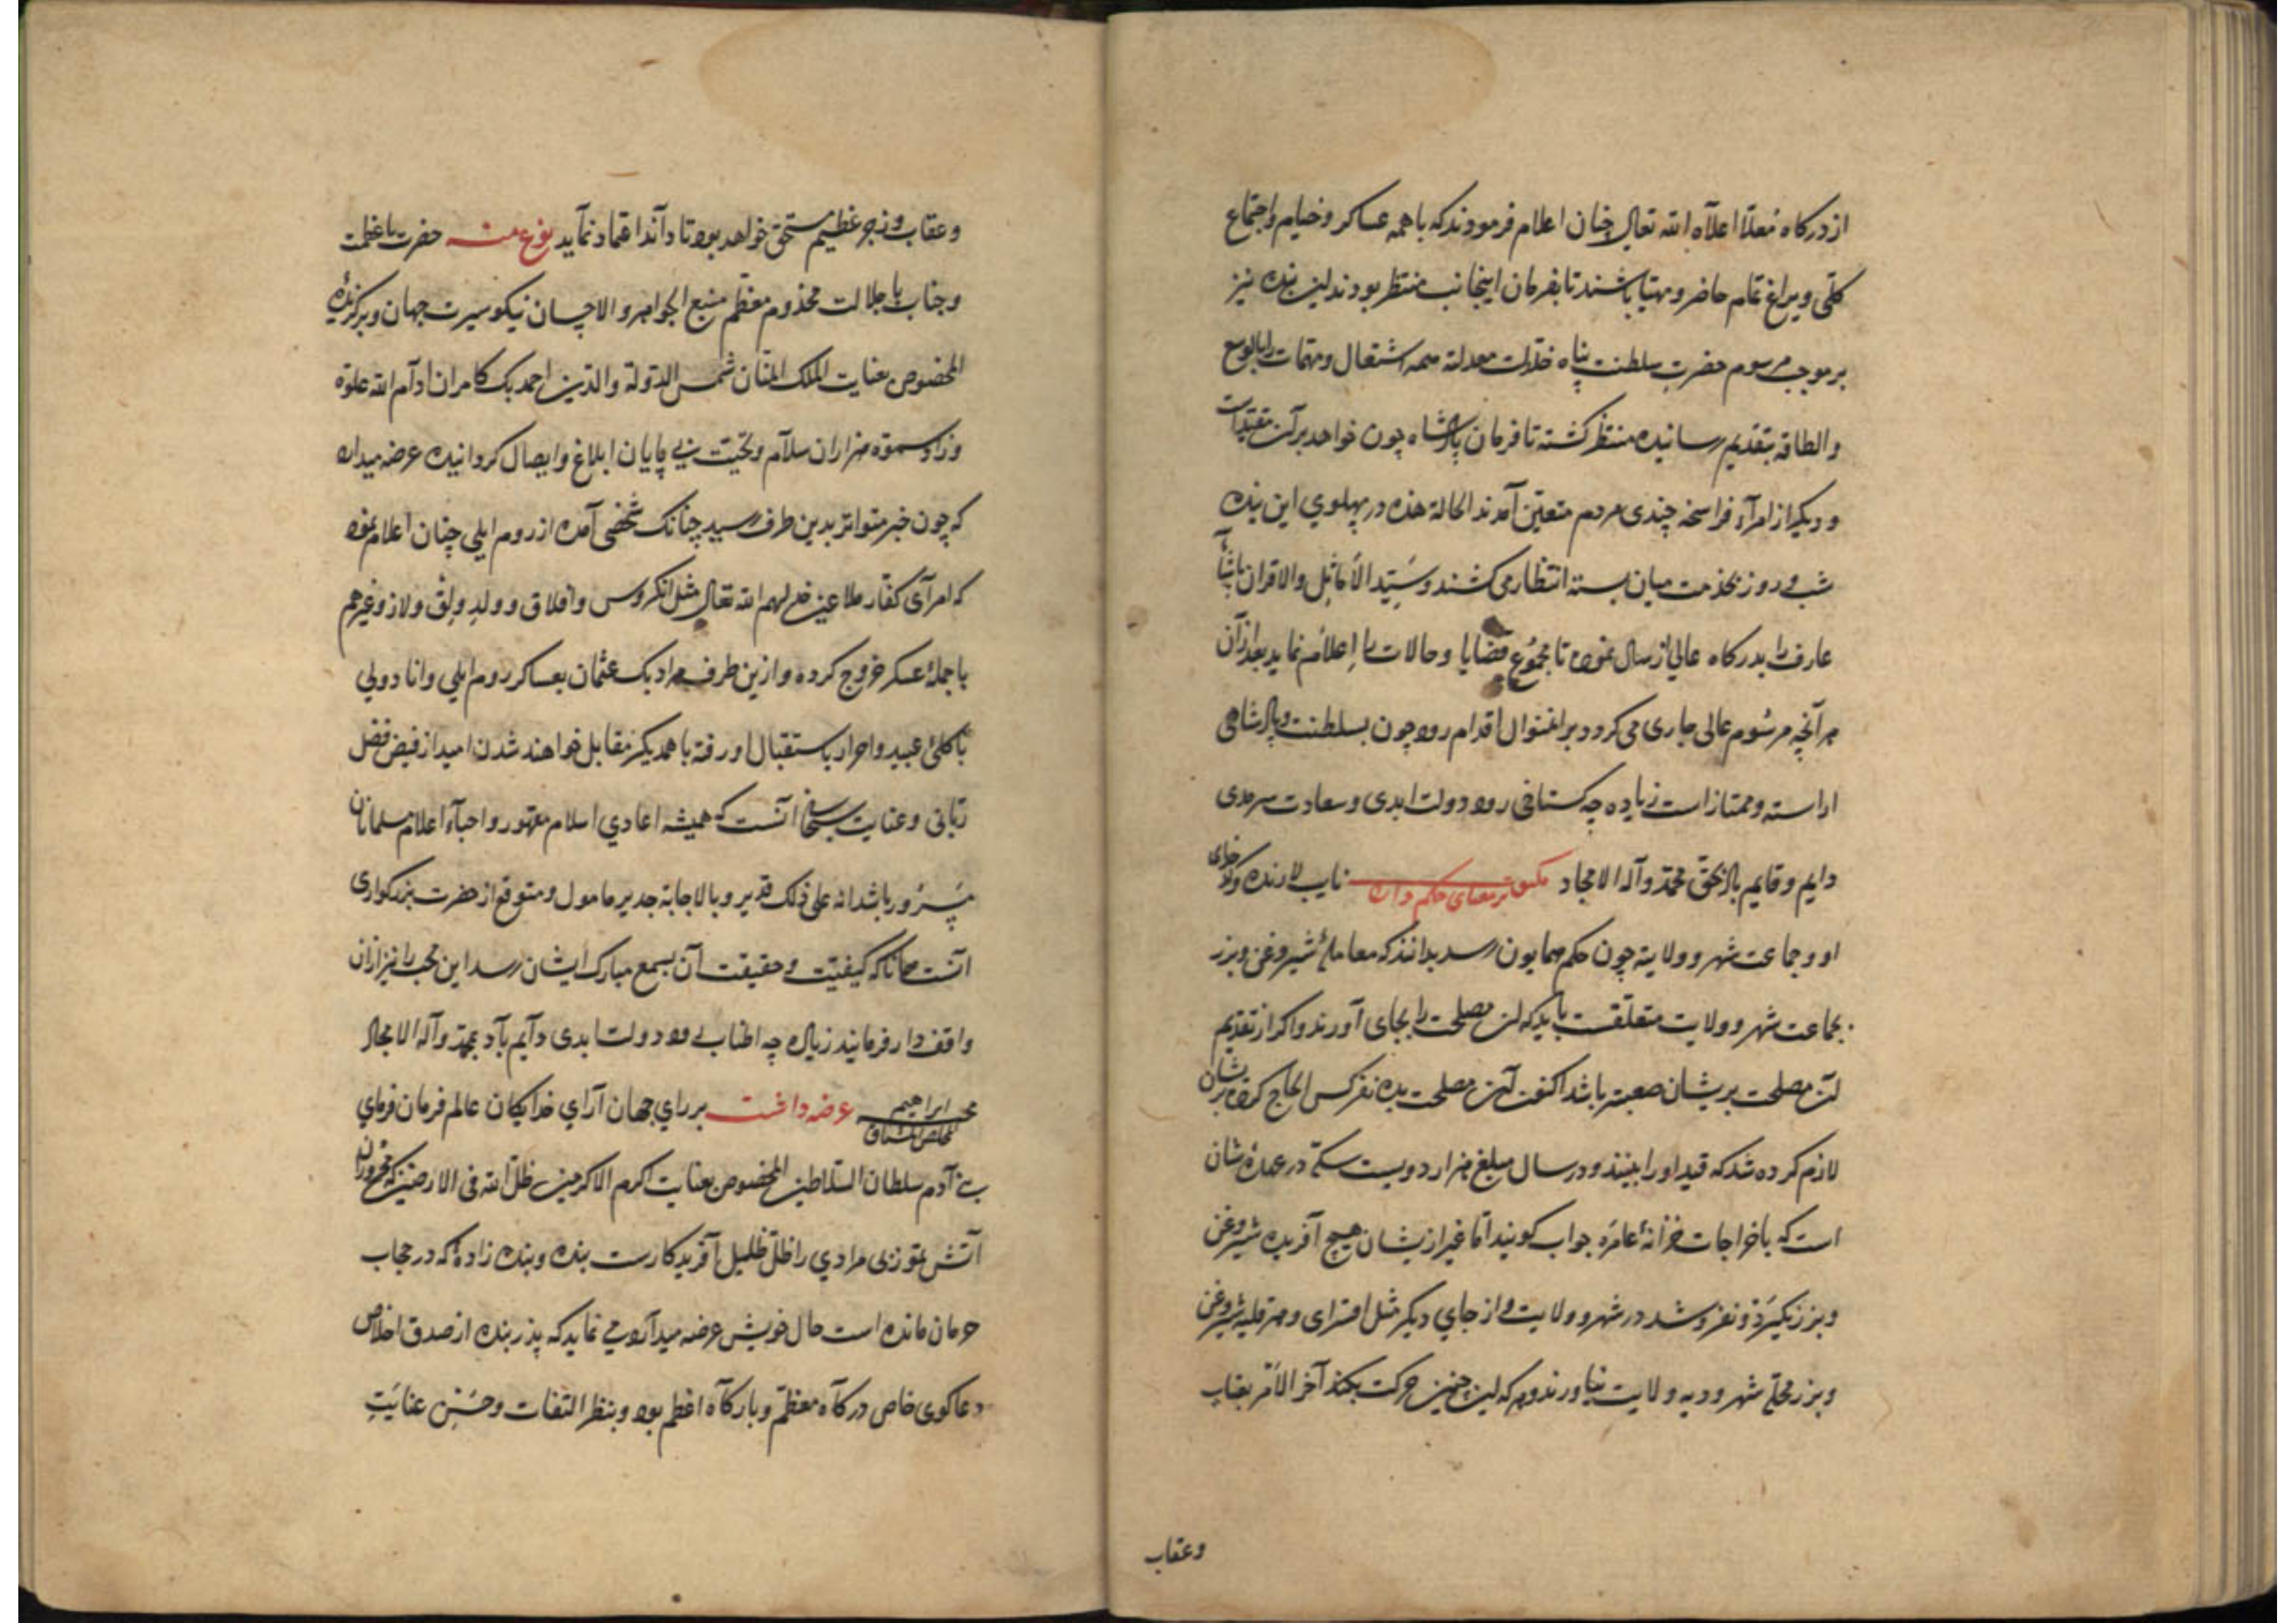 از درکاه معلّا اعلاه الله تعالی چنان اعلام فرمودند که با همه عساکر و خیام و اجتماع
کلّی و یراغ تمام حاضر و مهیّا باشند تا بفرمان اینجانب منتظر بودند این بنده نیز
بر موجب مرسوم حضرت سلطنت پناه خلدت معدلته همه اشتغال و مهمات را بالوسع
والطاقه بتقدیم رسانیده منتظر کشته تا فرمان پادشاه چون خواهد بر آن
و دیکر از امرآء چندی مردم متعیّن آمدند الحالة هذه در پهلوی این بنده
شب و روز بخدمت میان بسته انتظار می کشند و سیّد الأماثل والاقران پاشا
عارف را بدرکاه عالی ارسال نموده تا مجموع قضایا و حالات را اعلام نماید بعد از آن
هر آنچه مرسوم عالی جاری می کردد بر آن منوال اقدام رود چون بسلطنت و پادشاهی
اراسته و ممتاز است زیاده چه کستاخی رود دولت ابدی و سعادت سرمدی
دایم و قایم باد بحق محمّد و آله الامجاد مکتوب بر معنای حکم داده نایب لارنده
او و جماعت شهر و ولایته چون حکم همایون رسد بدانند که معاملهٔ شیروغن و بزر
بجماعت شهر و ولایت متعلّقست باید که این مصلحت را بجای آورند و اکر از تقدیم
آن مصلحت بریشان صعب باشد اکنون آن مصلحت بده نفر کس الحاج کرده بریشان
لازم کرده شد که قید او را ببینند و در سال مبلغ هزار دویست سکّه در عهدهٔ شان
است که باخراجات خزانهٔ عامره جواب کویند امّا غیر ازیشان هیچ آفریده شیروغن
و بزر نکیرد و نفروشد در شهر و ولایت و از جای دیکر مثل اقسرای و شیروغن
و بزر شهر و دیه ولایت نیاورند و هر که این چنین حرکت بکند آخر الأمر بعقاب
وعقاب
وعقاب و زجر عظیم مستحق خواهد بود تا دانند اعتماد نمآید نوع منه حضرت باعظمت
و جناب با جلالت مخدوم معظّم منبع الجواهر و الاحسان نیکو سیرت جهان و برکزیدهٔ
المخصوص بعنایت الملک المنّان شمس الدولة والدین احمد بک کامران ادآم الله علوّه
وزاد سموّه هزاران سلآم و تحیّت بی پایان ابلاغ و ایصال کردانیده عرضه میدارد
که چون خبر متواتر بدین طرف رسید چنانک شخصی آمده از روم ایلی چنان اعلام نمود
که امرآی کفّار ملاعین خذلهم الله تعالی مثل انکروس و افلاق و ولد ولق ولاز و غیرهم
با جملهٔ عسکر خروج کرده و ازین طرف مراد بک عثمان بعساکر روم ایلی و انادولی
با کلّئ عبید و احرار باستقبال او رفته با همدیکر مقابل خواهند شدن امید از فیض فضل
ربّانی و عنایت سبحانی آنست که همیشه اعادی اسلام مقهور و احبآء اعلام مسلمانان
مسرور باشد انه علی ذلک قدیر و بالاجابة جدیر مامول و متوقع از حضرت بزرکواری
آنست همانا که کیفیّت و حقیقت آن بسمع مبارک ایشان رسد این محب را نیز از آن
واقف دار فرمایند زیاده چه اطناب رود دولت ابدی دآیم بآد بمحمّد و آله الامجاد
محب ابراهیم المخلص المشتاق عرضه داشت بر رای جهان آرای خدایکان عالم فرمان فرمای
بنی آدم سلطان السلاطین المخصوص بعنایت اکرم الاکرمین ظلّ الله فی الارضین که محروران
آتش تموز بی مرادی را ظلّ ظلیل آفریدکارست بنده و بنده زاده که در حجاب
حرمان مانده است حال خویش عرضه میدآرد می نماید که پدر بنده از صدق اخلاص
دعاکوی خاص درکآه معظّم و بارکآه اعظم بود و بنظر التفات و حسن عنایَتِ